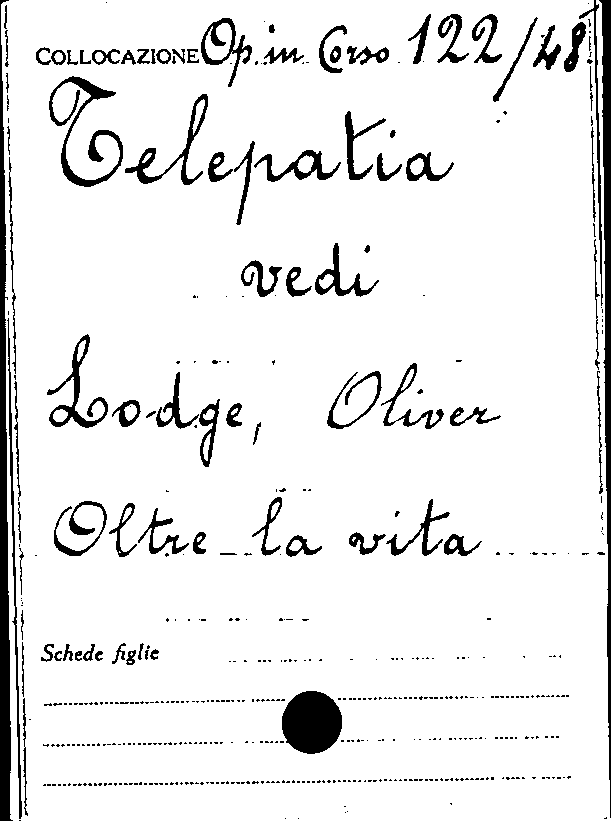 COLLOCAZIONE Op. in Corso 122/48
Telepatia
vedi
Lodge, Oliver
Oltre la vita
Schede figlie